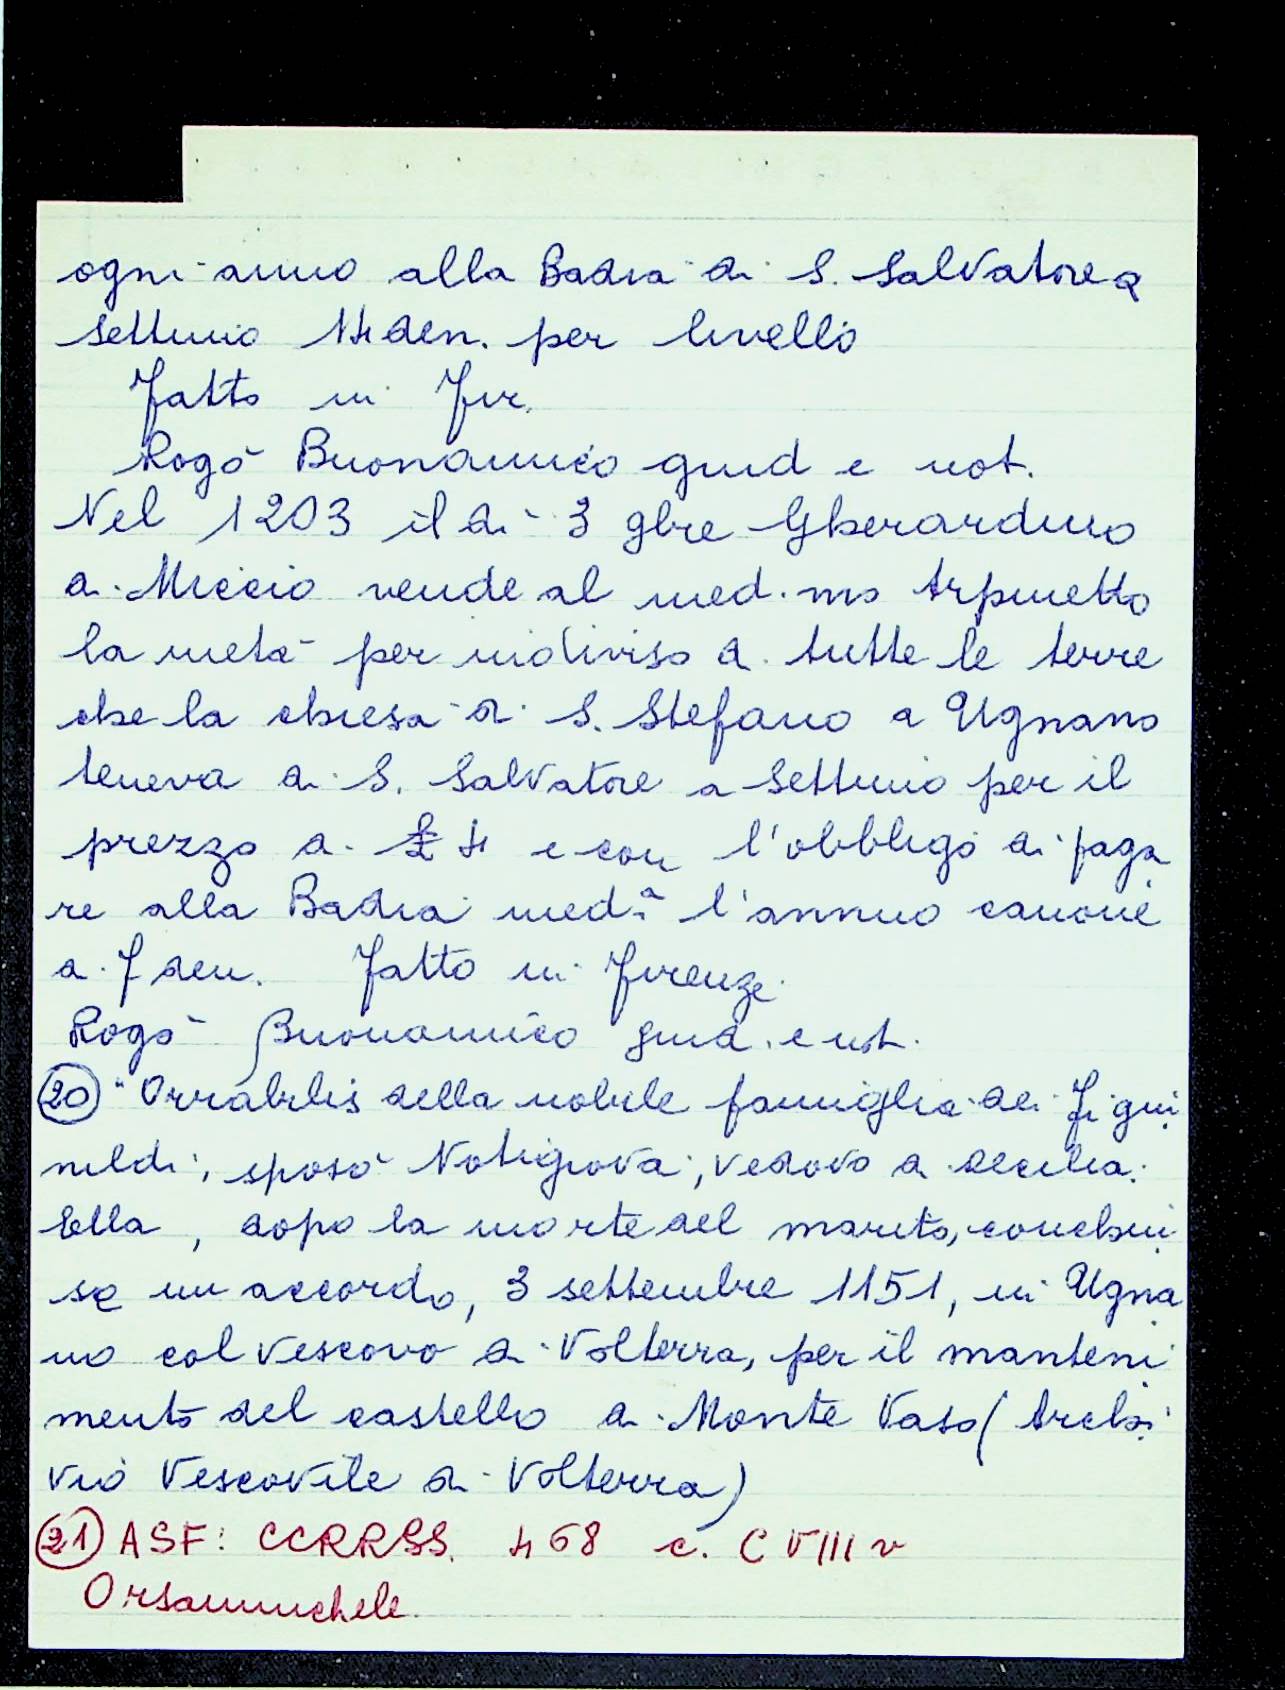 ogni anno alla Badia di S. Salvatore a
Settimo 14 den. per livello
Fatto in Fir.
Rogò Buonamico giud e not.
Nel 1203 il dì 3 gbre Gherardino
di Miccio vende al med.mo Arpinetto
la metà per indiviso di tutte le terre
che la chiesa di S. Stefano a Ugnano
teneva di S. Salvatore a Settimo per il
prezzo di £ 4 e con l'obbligo di paga
re alla Badia medª l'annuo canone
di 7 den. Fatto in Firenze
Rogò Buonamico giud. e not.
20 "Orrabilis della nobile famiglia dei Figui
nildi, sposò Notigiova, vedovo di Cecilia.
Ella, dopo la morte del marito, conchiu
se un accordo, 3 settembre 1151, in Ugna
no col Vescovo di Volterra, per il manteni
mento del castello di Monte Vaso (Archi
vio Vescovile di Volterra)
21 ASF: CCRRSS. 468 c. CVIII v
Orsanmichele